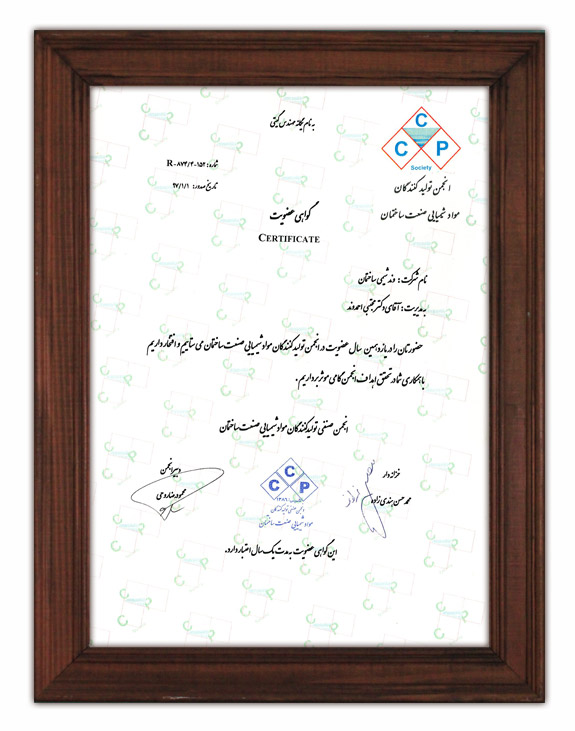 به نام یگانه مهندس گیتی
C
C P
Society
انجمن تولید کنندگان
مواد شیمیایی صنعت ساختمان
شماره: R-۸۷۴/۳-۱۵۲
تاریخ صدور: ۹۷/۱/۱
گواهی عضویت
CERTIFICATE
نام شرکت: وند شیمی ساختمان
به مدیریت: آقای دکتر مجتبی احمدوند
حضورتان را در یازدهمین سال عضویت در انجمن تولید کنندگان مواد شیمیایی صنعت ساختمان می ستاییم و افتخار داریم
با همکاری شما در تحقق اهداف انجمن گامی موثر برداریم.
انجمن صنفی تولید کنندگان مواد شیمیایی صنعت ساختمان
خزانه دار
محمد حسن بندی زاده
C
C P
انجمن صنفی تولید کنندگان
مواد شیمیایی صنعت ساختمان
دبیر انجمن
محمود رضا روحی
این گواهی عضویت به مدت یک سال اعتبار دارد.